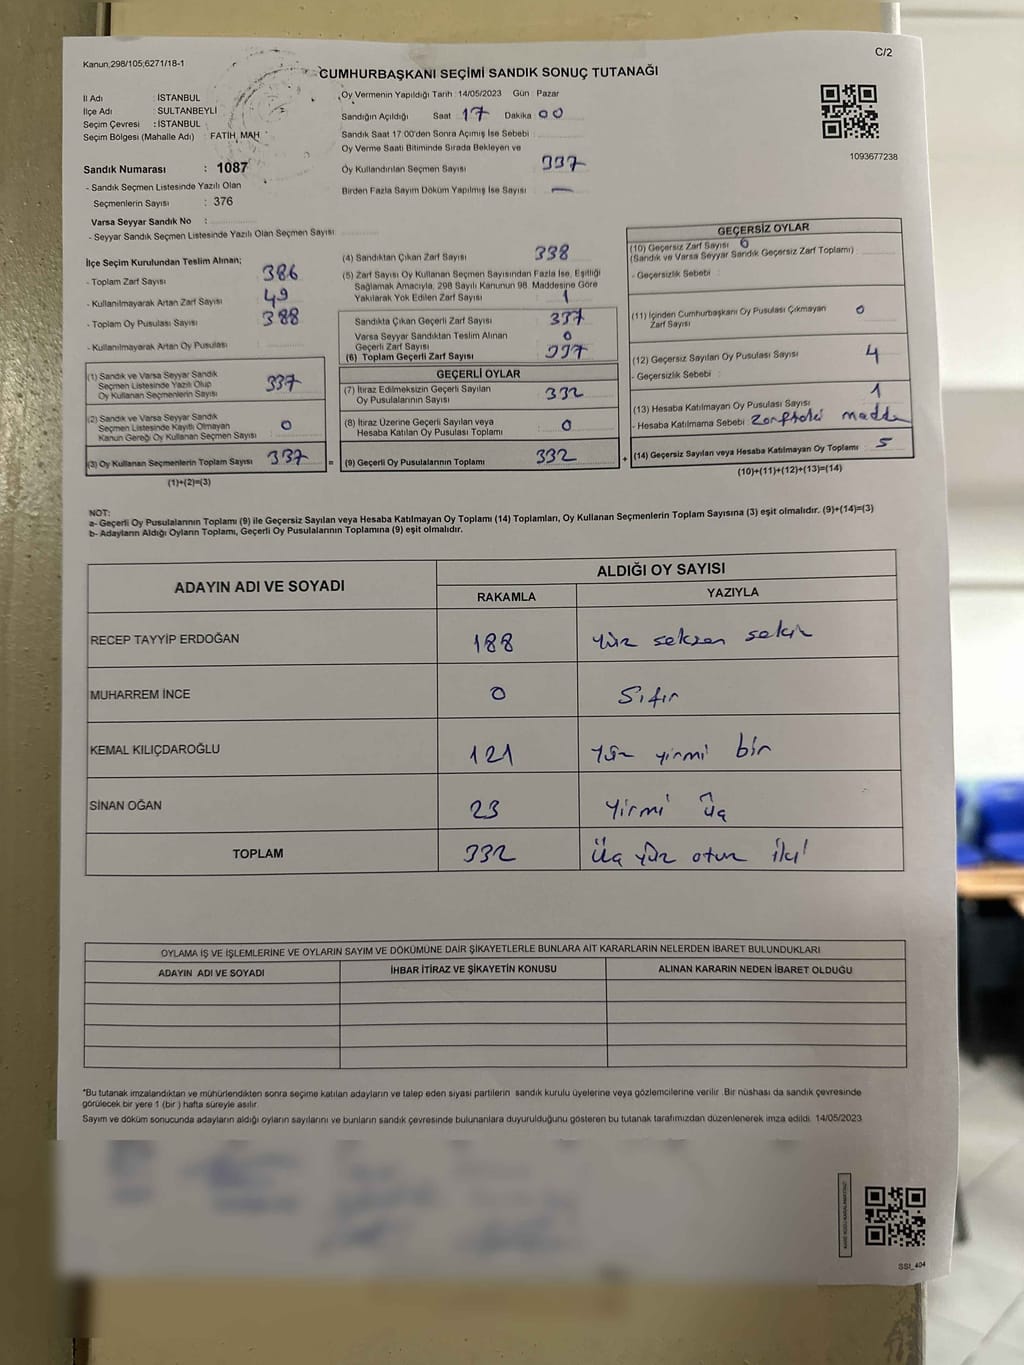 Kanun;298/105;6271/18-1
C/2
CUMHURBAŞKANI SEÇİMİ SANDIK SONUÇ TUTANAĞI
İl Adı : İSTANBUL
İlçe Adı : SULTANBEYLİ
Seçim Çevresi : İSTANBUL
Seçim Bölgesi (Mahalle Adı) : FATİH MAH.
Sandık Numarası : 1087
- Sandık Seçmen Listesinde Yazılı Olan
Seçmenlerin Sayısı : 376
Varsa Seyyar Sandık No :
- Seyyar Sandık Seçmen Listesinde Yazılı Olan Seçmen Sayısı
Oy Vermenin Yapıldığı Tarih : 14/05/2023 Gün : Pazar
Sandığın Açıldığı Saat 17 Dakika 00
Sandık Saat 17:00'den Sonra Açılmış İse Sebebi :
Oy Verme Saati Bitiminde Sırada Bekleyen ve
Oy Kullandırılan Seçmen Sayısı 337
Birden Fazla Sayım Döküm Yapılmış İse Sayısı —
1093677238
İlçe Seçim Kurulundan Teslim Alınan;
- Toplam Zarf Sayısı 386
- Kullanılmayarak Artan Zarf Sayısı 49
- Toplam Oy Pusulası Sayısı 388
- Kullanılmayarak Artan Oy Pusulası
(1) Sandık ve Varsa Seyyar Sandık
Seçmen Listesinde Yazılı Olup
Oy Kullanan Seçmenlerin Sayısı 337
(2) Sandık ve Varsa Seyyar Sandık
Seçmen Listesinde Kayıtlı Olmayan
Kanun Gereği Oy Kullanan Seçmen Sayısı 0
(3) Oy Kullanan Seçmenlerin Toplam Sayısı 337
(1)+(2)=(3)
(4) Sandıktan Çıkan Zarf Sayısı 338
(5) Zarf Sayısı Oy Kullanan Seçmen Sayısından Fazla İse, Eşitliği
Sağlamak Amacıyla, 298 Sayılı Kanunun 98. Maddesine Göre
Yakılarak Yok Edilen Zarf Sayısı 1
Sandıkta Çıkan Geçerli Zarf Sayısı 337
Varsa Seyyar Sandıktan Teslim Alınan
Geçerli Zarf Sayısı 0
(6) Toplam Geçerli Zarf Sayısı 337
GEÇERLİ OYLAR
(7) İtiraz Edilmeksizin Geçerli Sayılan
Oy Pusulalarının Sayısı 332
(8) İtiraz Üzerine Geçerli Sayılan veya
Hesaba Katılan Oy Pusulası Toplamı 0
= (9) Geçerli Oy Pusulalarının Toplamı 332
GEÇERSİZ OYLAR
(10) Geçersiz Zarf Sayısı 0
(Sandık ve Varsa Seyyar Sandık Geçersiz Zarf Toplamı)
- Geçersizlik Sebebi :
(11) İçinden Cumhurbaşkanı Oy Pusulası Çıkmayan
Zarf Sayısı 0
(12) Geçersiz Sayılan Oy Pusulası Sayısı 4
- Geçersizlik Sebebi :
(13) Hesaba Katılmayan Oy Pusulası Sayısı 1
- Hesaba Katılmama Sebebi : Zarftaki madde
+ (14) Geçersiz Sayılan veya Hesaba Katılmayan Oy Toplamı 5
(10)+(11)+(12)+(13)=(14)
NOT:
a- Geçerli Oy Pusulalarının Toplamı (9) ile Geçersiz Sayılan veya Hesaba Katılmayan Oy Toplamı (14) Toplamları, Oy Kullanan Seçmenlerin Toplam Sayısına (3) eşit olmalıdır. (9)+(14)=(3)
b- Adayların Aldığı Oyların Toplamı, Geçerli Oy Pusulalarının Toplamına (9) eşit olmalıdır.
ADAYIN ADI VE SOYADI ALDIĞI OY SAYISI
RAKAMLA YAZIYLA
RECEP TAYYİP ERDOĞAN 188 Yüz seksen sekiz
MUHARREM İNCE 0 Sıfır
KEMAL KILIÇDAROĞLU 121 Yüz yirmi bir
SİNAN OĞAN 23 Yirmi üç
TOPLAM 332 Üç yüz otuz iki
OYLAMA İŞ VE İŞLEMLERİNE VE OYLARIN SAYIM VE DÖKÜMÜNE DAİR ŞİKAYETLERLE BUNLARA AİT KARARLARIN NELERDEN İBARET BULUNDUKLARI
ADAYIN ADI VE SOYADI İHBAR İTİRAZ VE ŞİKAYETİN KONUSU ALINAN KARARIN NEDEN İBARET OLDUĞU
*Bu tutanak imzalandıktan ve mühürlendikten sonra seçime katılan adayların ve talep eden siyasi partilerin sandık kurulu üyelerine veya gözlemcilerine verilir. Bir nüshası da sandık çevresinde
görülecek bir yere 1 (bir) hafta süreyle asılır.
Sayım ve döküm sonucunda adayların aldığı oyların sayılarını ve bunların sandık çevresinde bulunanlara duyurulduğunu gösteren bu tutanak tarafımızdan düzenlenerek imza edildi. 14/05/2023
SSI_404